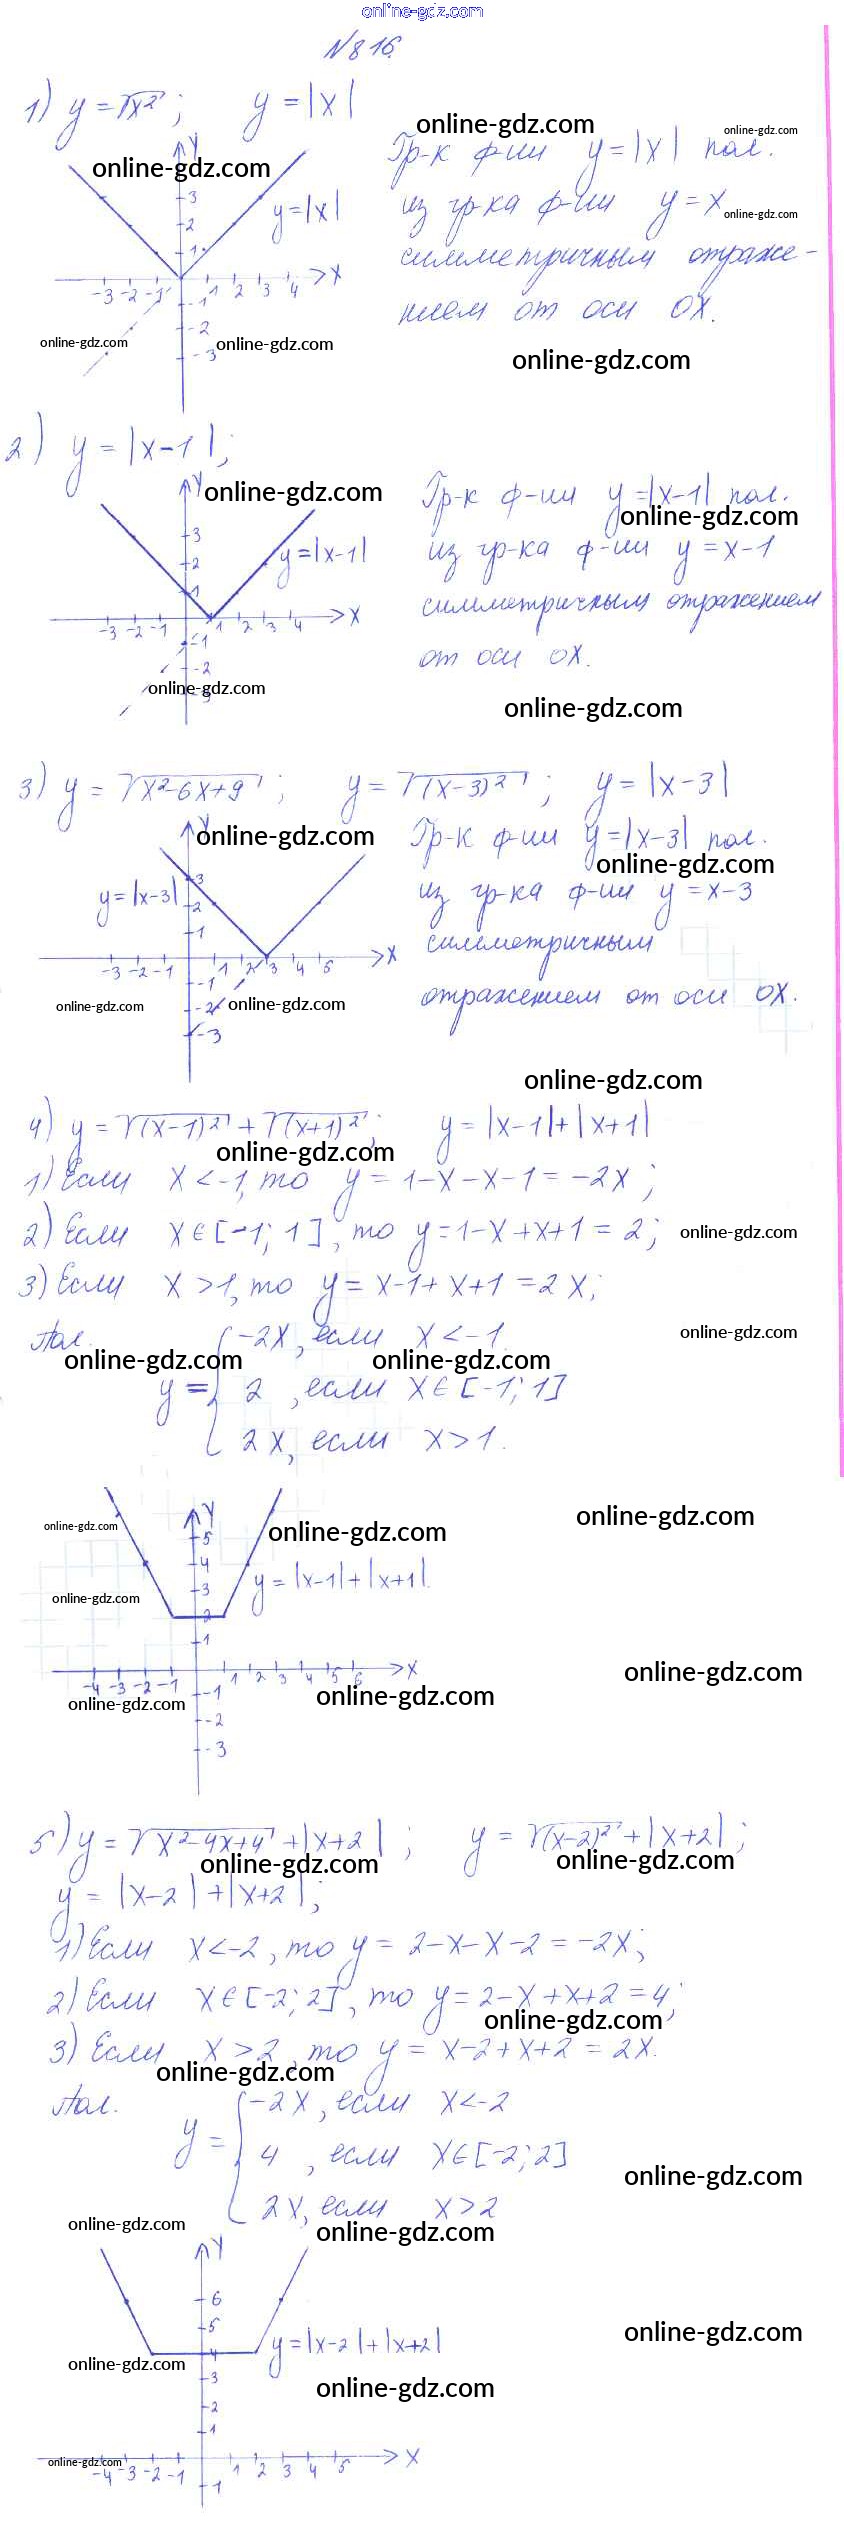 online-gdz.com
№816
1) y=√x²; y=|x|
online-gdz.com
online-gdz.com
online-gdz.com
Гр-к ф-ии y=|x| пол.
из гр-ка ф-ии y=x
online-gdz.com
симметричным отраже-
нием от оси OX.
Y
3
2
1
y=|x|
-3 -2 -1 1 2 3 4 X
-1
-2
-3
online-gdz.com
online-gdz.com
online-gdz.com
2) y=|x-1|;
Y
online-gdz.com
Гр-к ф-ии y=|x-1| пол.
online-gdz.com
из гр-ка ф-ии y=x-1
симметричным отражением
от оси OX.
3
2
1
y=|x-1|
-3 -2 -1 1 2 3 4 X
-1
-2
-3
online-gdz.com
online-gdz.com
3) y=√x²-6x+9; y=√(x-3)²; y=|x-3|
Y
online-gdz.com
Гр-к ф-ии y=|x-3| пол.
online-gdz.com
из гр-ка ф-ии y=x-3
симметричным
отражением от оси OX.
y=|x-3|
3
2
1
-3 -2 -1 1 2 3 4 5 X
-1
-2
-3
online-gdz.com
online-gdz.com
online-gdz.com
4) y=√(x-1)²+√(x+1)²; y=|x-1|+|x+1|
online-gdz.com
1) Если x<-1, то y=1-x-x-1=-2x;
2) Если x∈[-1;1], то y=1-x+x+1=2;
online-gdz.com
3) Если x>1, то y=x-1+x+1=2x;
Пол.
online-gdz.com
online-gdz.com
online-gdz.com
y={-2x, если x<-1.
2, если x∈[-1;1]
2x, если x>1.
Y
online-gdz.com
online-gdz.com
online-gdz.com
5
4
3
2
1
y=|x-1|+|x+1|.
online-gdz.com
-4 -3 -2 -1 1 2 3 4 5 6 X
-1
-2
-3
online-gdz.com
online-gdz.com
online-gdz.com
5) y=√x²-4x+4+|x+2|; y=√(x-2)²+|x+2|;
online-gdz.com
online-gdz.com
y=|x-2|+|x+2|;
1) Если x<-2, то y=2-x-x-2=-2x;
2) Если x∈[-2;2], то y=2-x+x+2=4;
online-gdz.com
3) Если x>2, то y=x-2+x+2=2x.
online-gdz.com
Пол.
y={-2x, если x<-2
4, если x∈[-2;2]
2x, если x>2
online-gdz.com
online-gdz.com
online-gdz.com
Y
6
5
4
3
2
1
y=|x-2|+|x+2|
online-gdz.com
online-gdz.com
online-gdz.com
online-gdz.com
-4 -3 -2 -1 1 2 3 4 5 X
-1